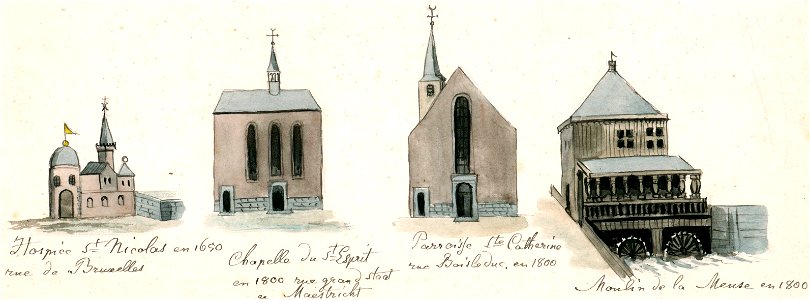 Hospice St. Nicolas en 1650
rue de Bruxelles
Chapelle du St. Esprit
en 1800 rue grand stroot
en Maestricht
Parroisse Ste Catherine
rue Boisleduc, en 1800
Moulin de la Meuse en 1800